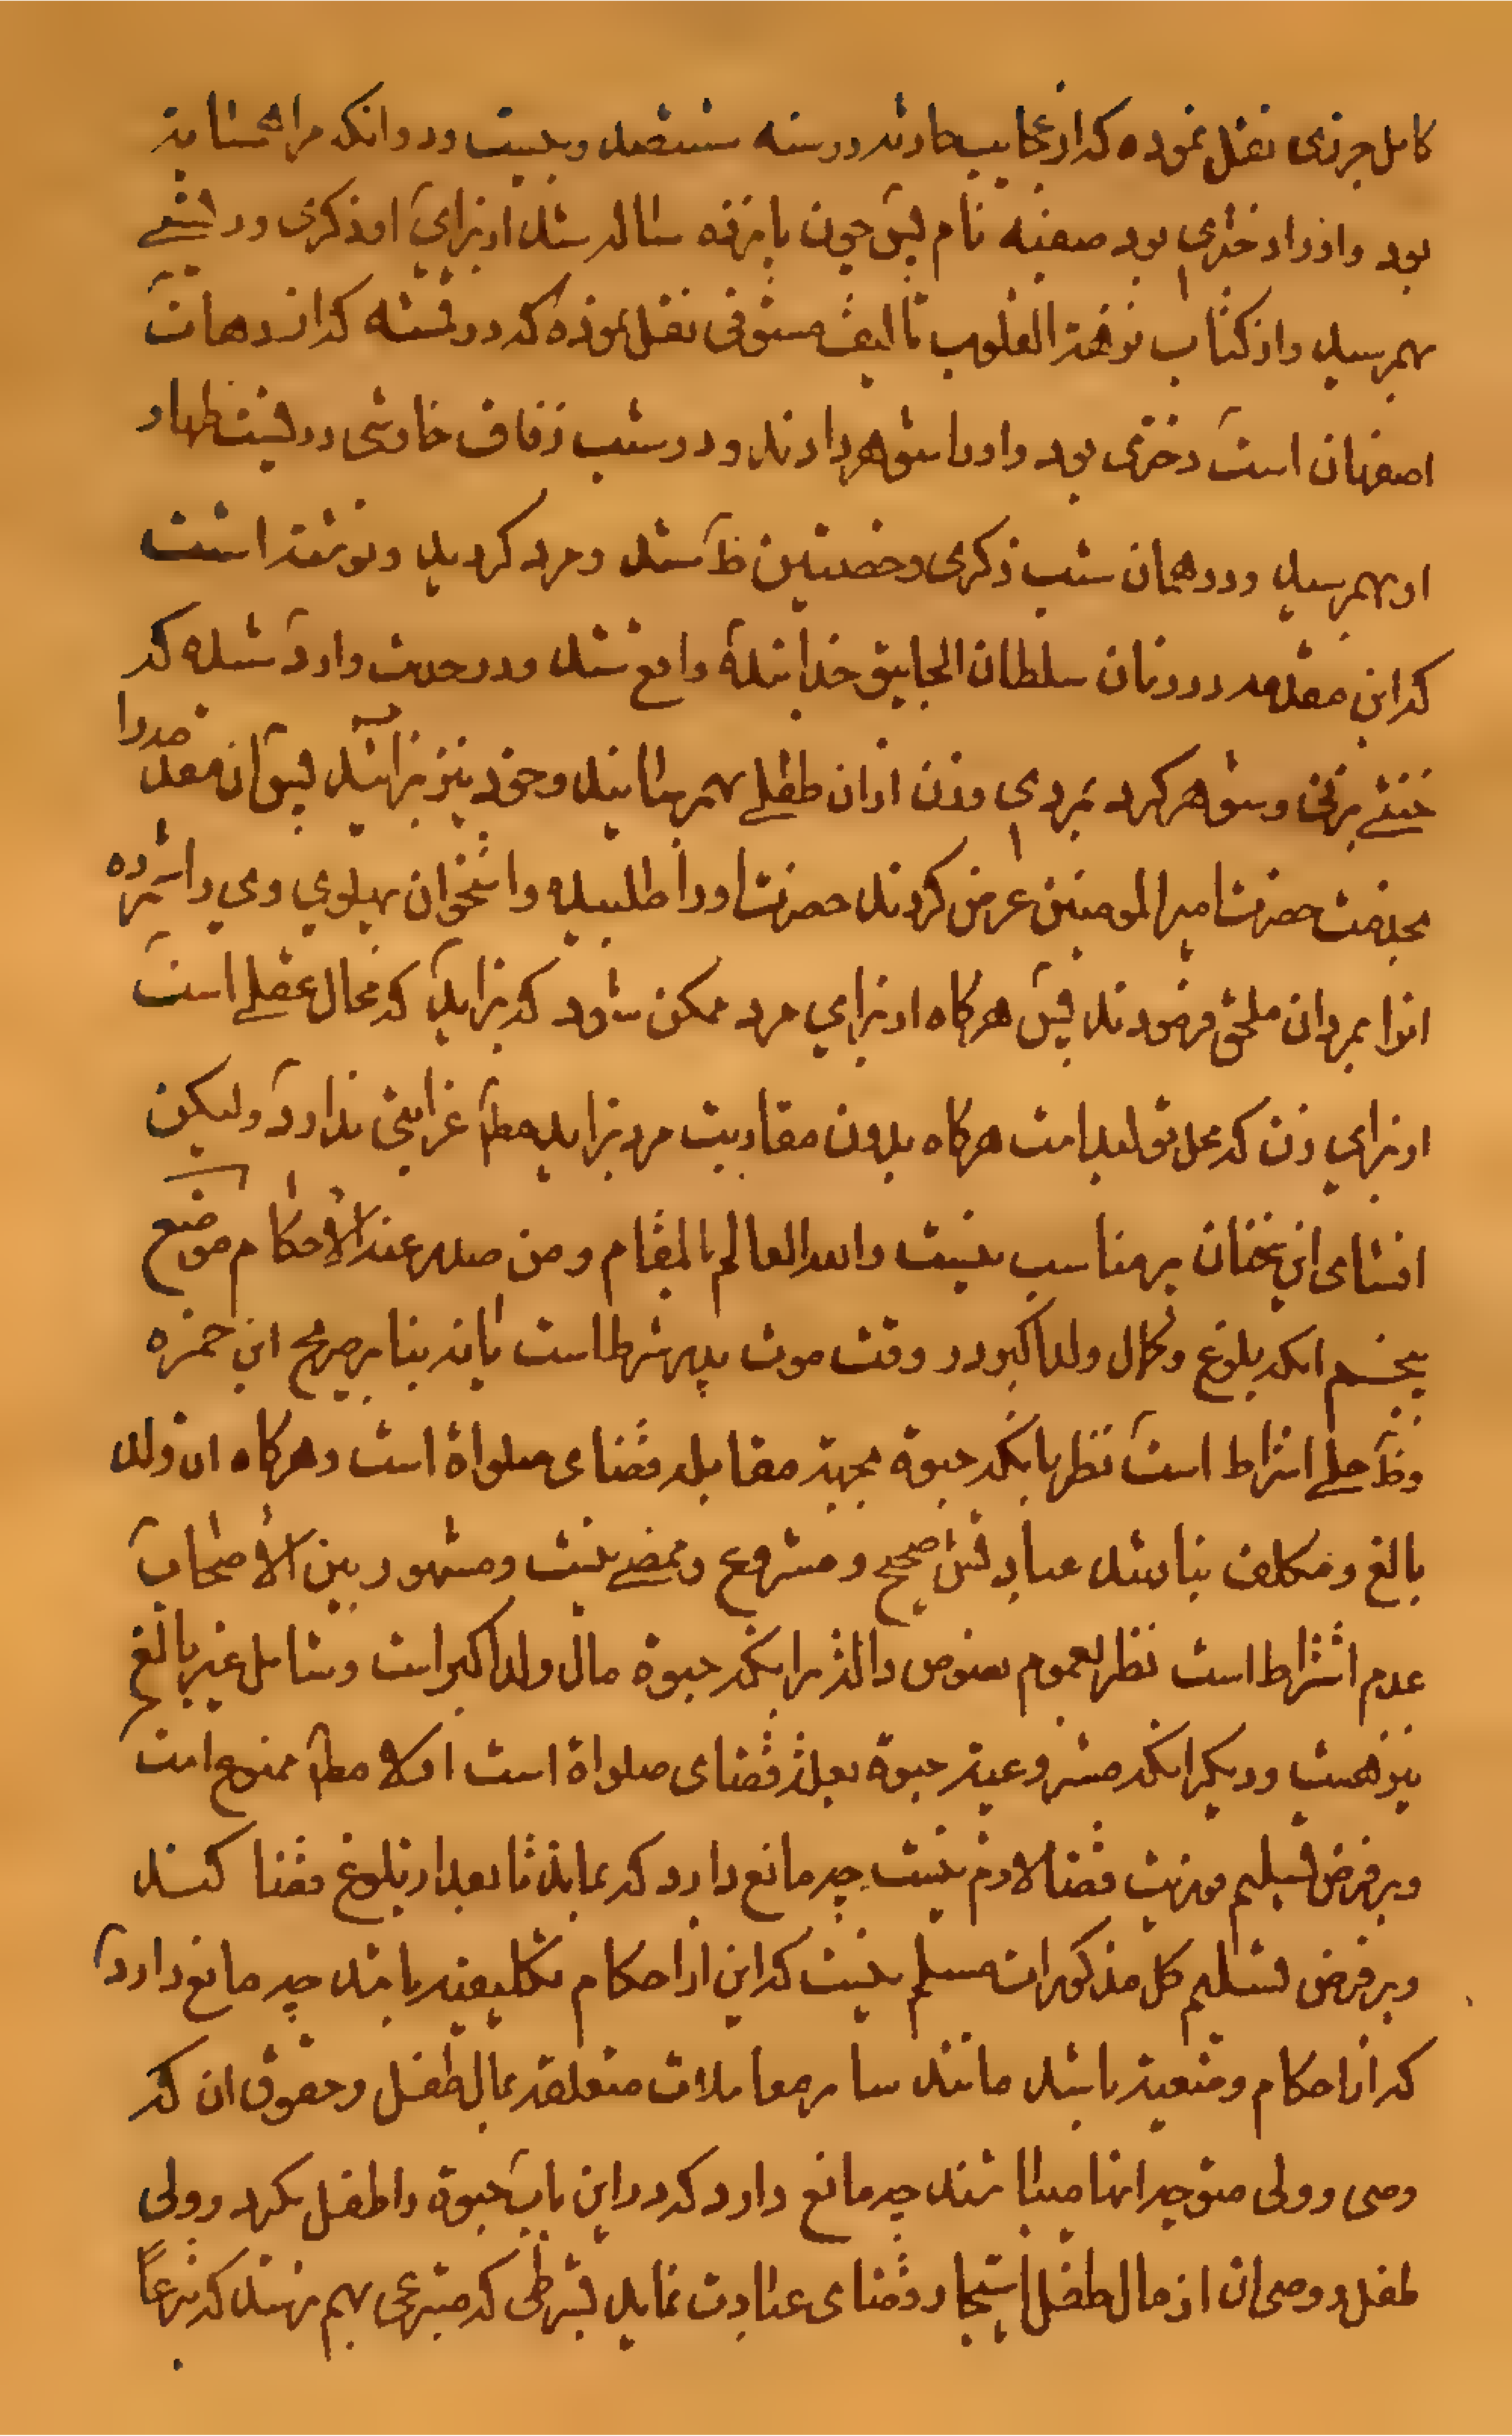 کامل جزری نقل نموده که از عجایب حادثه در سنه ششصد و بیست و دو انکه مرا همسایه
بود و او را دختری بود صفیه نام پس چون پانزده ساله شد از برای او ذکری و دو انثیی
بهم رسید و از کتاب نزهة القلوب تالیف مستوفی نقل نموده که در قمشه که از دهات
اصفهان است دختری بود و او را شوهر دادند و در شب زفاف خارشی در
او بهم رسید و در همان شب ذکری و خصیتین ظ شد و مرد کردید و نوشته است
که این مقدمه در زمان سلطان الجایتو خدا بنده واقع شد و در حدیث وارد شده که
خنثی بزنی و شوهر کرد بمردی و زن ازان طفلی بهم رسانید و خود نیز زائید پس آن مقدمه را
بخدمت حضرت امیرالمومنین عرض کردند حضرت او را طلبیده و استخوان پهلوی وی را شمرده
انرا بمردان ملحق فرمودند پس هرکاه از برای مرد ممکن شود که بزاید که محال عقلی است
از برای زن که محل تولید است هرکاه بدون مقاربت مرد بزاید مط غرابتی ندارد ولیکن
افشای این سخنان بر مناسب نیست والله العالم بالمقام و من صدر عنه الاحکام موضع
پنجم انکه بلوغ و کمال ولد اکبر در وقت موت پدر شرط است یا نه بنا بر صریح ابن حمزه
و ظ حلی اشتراط است نظر بانکه حبوة بجهة مقابله قضای صلواة است و هرکاه ان ولد
بالغ و مکلف نباشد عبادتش صحیح و مشروع و ممضی نیست و مشهور بین الاصحاب
عدم اشتراط است نظر بعموم نصوص داله بر اینکه حبوة مال ولد اکبر است و شامل غیر بالغ
نیز هست و دیکر انکه مشروعیة حبوة بعلة قضای صلواة است اولا مط ممنوع است
و بر فرض تسلیم فوریت قضا لازم نیست چه مانع دارد که بماند تا بعد از بلوغ قضا کند
و بر فرض تسلیم کل مذکورات مسلم نیست که این از احکام تکلیفیه باشد چه مانع دارد
که از احکام وضعیه باشد مانند سایر معاملات متعلقه بمال طفل و حقوق ان که
وصی و ولی متوجه انها میباشند چه مانع دارد که در این باب حبوة را طفل بکیرد و ولی
طفل و وصی ان از مال طفل استیجار قضای عبادت نماید بشرطی که متبرعی بهم نرسد که تبرعاً